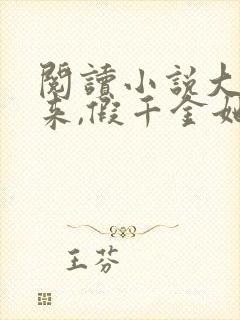 閱讀小說大
來,假千金她
王芬